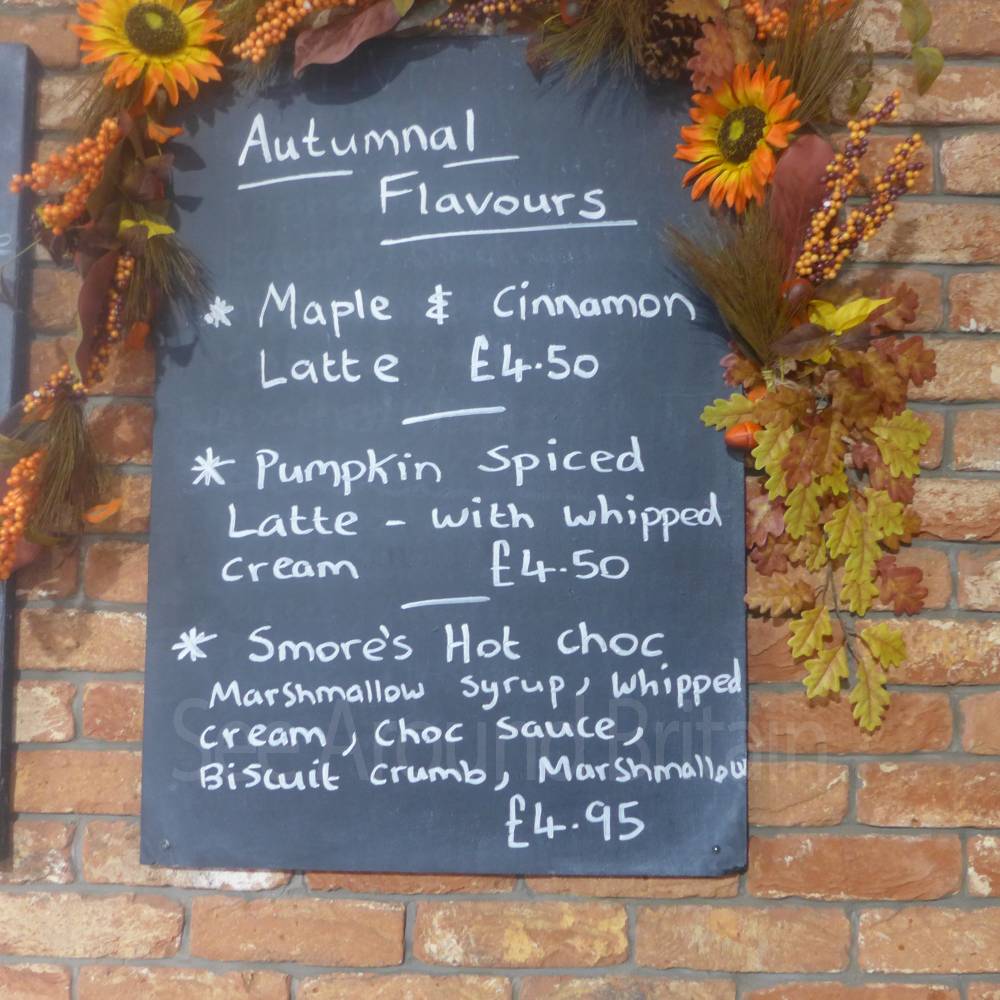 Autumnal
Flavours
* Maple & Cinnamon
Latte £4.50
* Pumpkin Spiced
Latte - with whipped
cream £4.50
* Smore's Hot choc
Marshmallow syrup, whipped
cream, choc sauce,
Biscuit crumb, Marshmallow
£4.95
See Around Britain